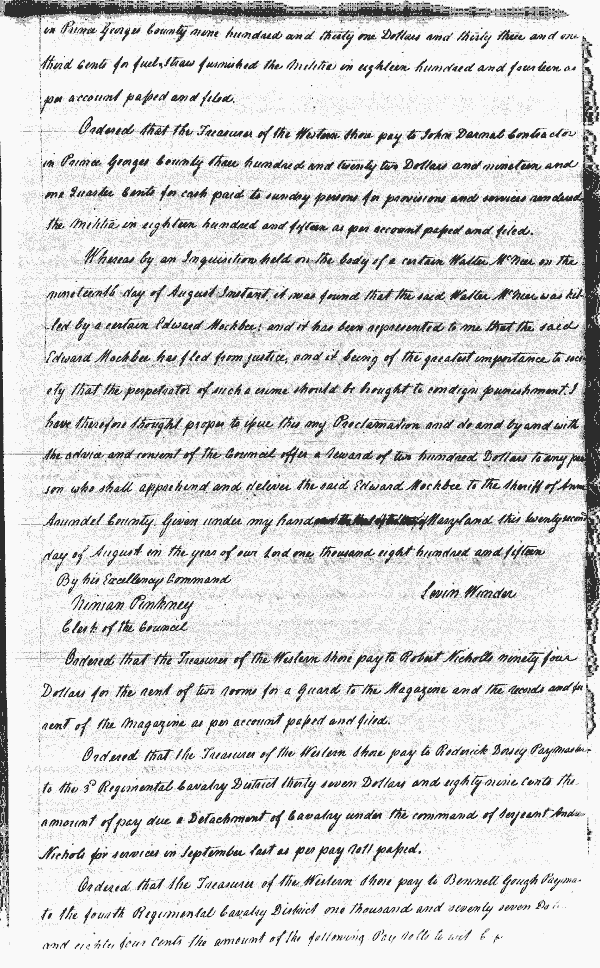 in Prince Georges County nine hundred and thirty one Dollars and thirty three and one
third Cents for fuel, straw furnished the Militia in eighteen hundred and fourteen as
per account passed and filed.
Ordered that the Treasurer of the Western Shore pay to John Darnal Contractor
in Prince Georges County three hundred and twenty two Dollars and nineteen and
one quarter Cents for cash paid to sundry persons for provisions and services rendered
the Militia in eighteen hundred and fifteen as per account passed and filed.
Whereas by an Inquisition held on the body of a certain Walter McNeer on the
nineteenth day of August Instant, it was found that the said Walter McNeer was kil-
led by a certain Edward Mockbee; and it has been represented to me that the said
Edward Mockbee has fled from justice, and it being of the greatest importance to soci-
ety that the perpetrator of such a crime should be brought to condign punishment. I
have therefore thought proper to issue this my Proclamation and do and by and with
the advice and consent of the Council offer a reward of two hundred Dollars to any per
son who shall apprehend and deliver the said Edward Mockbee to the Sheriff of Ann
Arundel County. Given under my hand Maryland this twenty second
day of August in the year of our Lord one thousand eight hundred and fifteen
By his Excellency Command
Levin Winder
Ninian Pinkney
Clerk of the Council
Ordered that the Treasurer of the Western Shore pay to Robert Nicholls ninety four
Dollars for the rent of two rooms for a Guard to the Magazine and the records and for
rent of the Magazine as per account passed and filed.
Ordered that the Treasurer of the Western Shore pay to Roderick Dorsey Paymaster
to the 3d Regimental Cavalry District thirty seven Dollars and eighty nine Cents the
amount of pay due a Detachment of Cavalry under the command of Serjeant Andw
Nichols for services in September last as per pay roll passed.
Ordered that the Treasurer of the Western Shore pay to Bennett Gough Payma-
to the fourth Regimental Cavalry District one thousand and seventy seven Do
and eighty four cents the amount of the following Pay rolls to wit